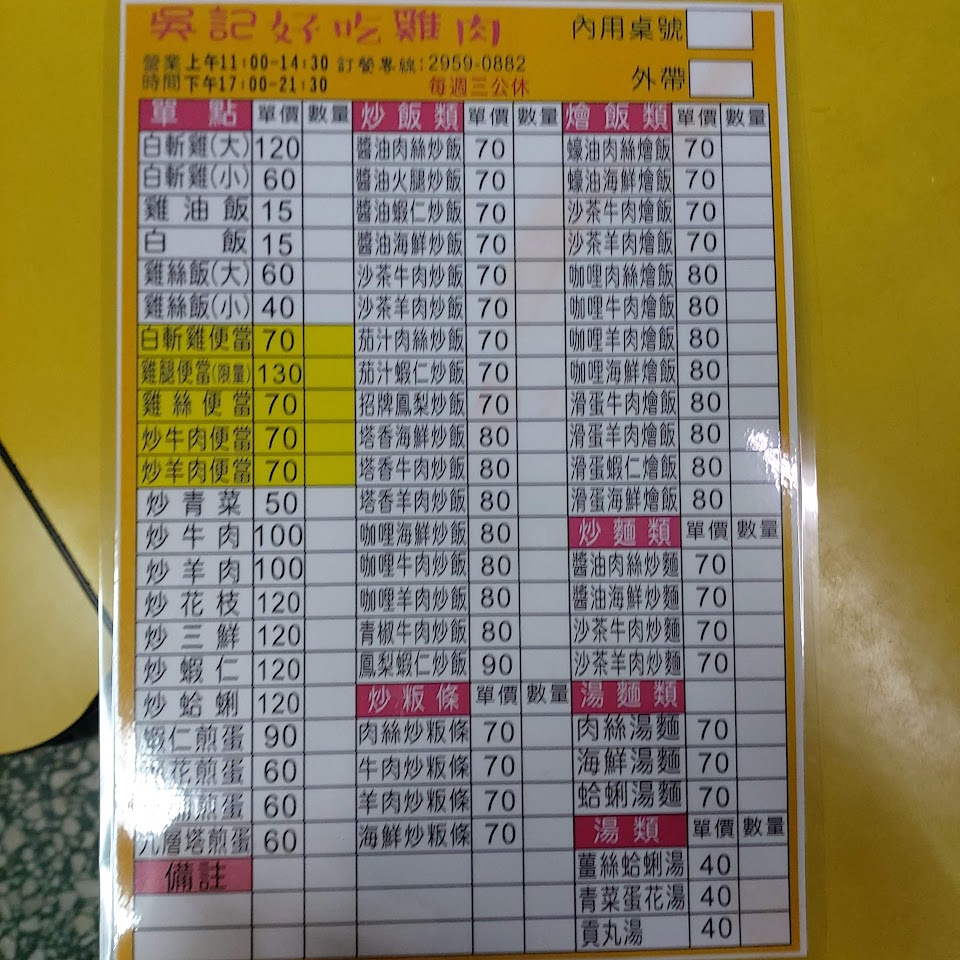 吳記好吃雞肉 內用桌號
營業 上午11:00-14:30 訂餐專線:2959-0882
時間 下午17:00-21:30 每週三公休 外帶
單點 單價 數量
白斬雞(大) 120
白斬雞(小) 60
雞油飯 15
白飯 15
雞絲飯(大) 60
雞絲飯(小) 40
白斬雞便當 70
雞腿便當(限量) 130
雞絲便當 70
炒牛肉便當 70
炒羊肉便當 70
炒青菜 50
炒牛肉 100
炒羊肉 100
炒花枝 120
炒三鮮 120
炒蝦仁 120
炒蛤蜊 120
蝦仁煎蛋 90
花煎蛋 60
煎蛋 60
九層塔煎蛋 60
備註
炒飯類 單價 數量
醬油肉絲炒飯 70
醬油火腿炒飯 70
醬油蝦仁炒飯 70
醬油海鮮炒飯 70
沙茶牛肉炒飯 70
沙茶羊肉炒飯 70
茄汁肉絲炒飯 70
茄汁蝦仁炒飯 70
招牌鳳梨炒飯 70
塔香海鮮炒飯 80
塔香牛肉炒飯 80
塔香羊肉炒飯 80
咖哩海鮮炒飯 80
咖哩牛肉炒飯 80
咖哩羊肉炒飯 80
青椒牛肉炒飯 80
鳳梨蝦仁炒飯 90
炒粄條 單價 數量
肉絲炒粄條 70
牛肉炒粄條 70
羊肉炒粄條 70
海鮮炒粄條 70
燴飯類 單價 數量
蠔油肉絲燴飯 70
蠔油海鮮燴飯 70
沙茶牛肉燴飯 70
沙茶羊肉燴飯 70
咖哩肉絲燴飯 80
咖哩牛肉燴飯 80
咖哩羊肉燴飯 80
咖哩海鮮燴飯 80
滑蛋牛肉燴飯 80
滑蛋羊肉燴飯 80
滑蛋蝦仁燴飯 80
滑蛋海鮮燴飯 80
炒麵類 單價 數量
醬油肉絲炒麵 70
醬油海鮮炒麵 70
沙茶牛肉炒麵 70
沙茶羊肉炒麵 70
湯麵類
肉絲湯麵 70
海鮮湯麵 70
蛤蜊湯麵 70
湯類 單價 數量
薑絲蛤蜊湯 40
青菜蛋花湯 40
貢丸湯 40